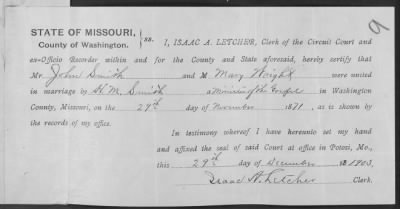 9
STATE OF MISSOURI,
County of Washington.
ss. I, ISAAC A. LETCHER, Clerk of the Circuit Court and
ex-Officio Recorder within and for the County and State aforesaid, hereby certify that
Mr. John Smith and M Mary Wright were united
in marriage by H. M. Smith a Minister of the Gospel in Washington
County, Missouri, on the 29th day of November 1871, as is shown by
the records of my office.
In testimony whereof I have hereunto set my hand
and affixed the seal of said Court at office in Potosi, Mo.,
this 29th day of December 1903.
Isaac A. Letcher
Clerk.